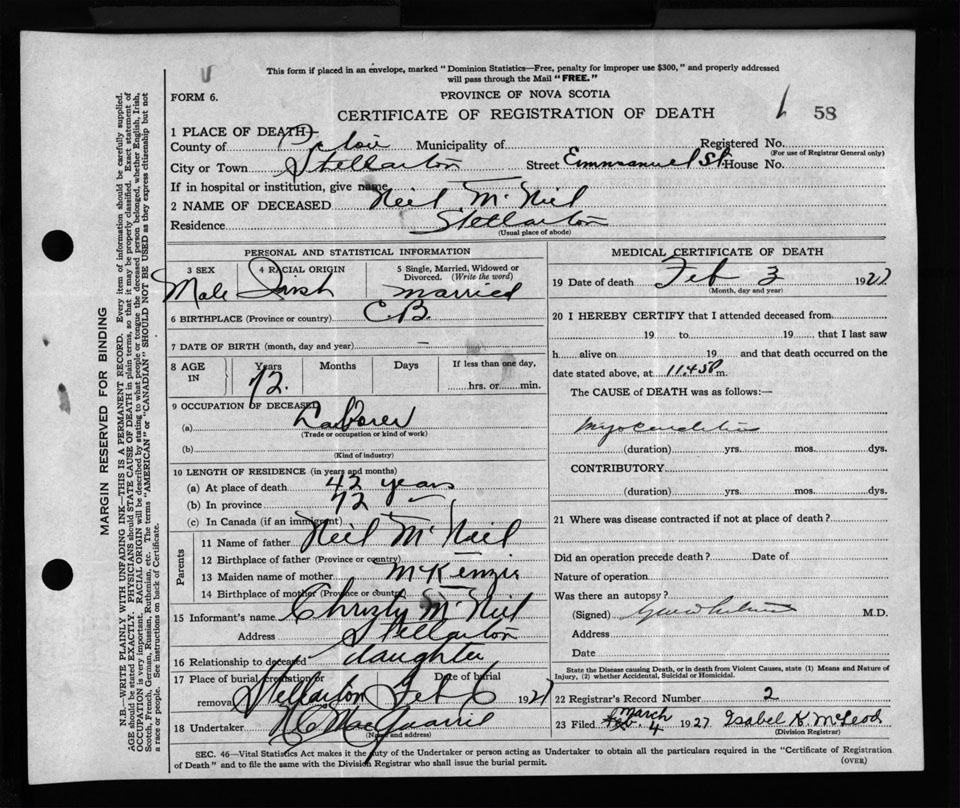 This form if placed in an envelope, marked "Dominion Statistics—Free, penalty for improper use $300," and properly addressed
will pass through the Mail "FREE."
FORM 6.
PROVINCE OF NOVA SCOTIA
CERTIFICATE OF REGISTRATION OF DEATH
58
1 PLACE OF DEATH—
County of Pictou Municipality of Registered No.
(For use of Registrar General only)
City or Town Stellarton Street Emmanuel St. House No.
If in hospital or institution, give name
2 NAME OF DECEASED Neil McNiel
Residence Stellarton
(Usual place of abode)
PERSONAL AND STATISTICAL INFORMATION
3 SEX 4 RACIAL ORIGIN 5 Single, Married, Widowed or Divorced. (Write the word)
Male Irish married
6 BIRTHPLACE (Province or country) C.B.
7 DATE OF BIRTH (month, day and year) —
8 AGE IN Years Months Days If less than one day,
72. hrs. or min.
9 OCCUPATION OF DECEASED
(a) Laborer
(Trade or occupation or kind of work)
(b)
(Kind of industry)
10 LENGTH OF RESIDENCE (in years and months)
(a) At place of death 42 years
(b) In province 72 —
(c) In Canada (if an immigrant)
Parents
11 Name of father Neil McNeil
12 Birthplace of father (Province or country)
13 Maiden name of mother McKenzie
14 Birthplace of mother (Province or country)
15 Informant's name Christy McNeil
Address Stellarton
16 Relationship to deceased daughter
17 Place of burial, cremation or removal Date of burial
Stellarton Feb 6 1927
18 Undertaker
(Name and address)
MEDICAL CERTIFICATE OF DEATH
19 Date of death Feb 3 1927
(Month, day and year)
20 I HEREBY CERTIFY that I attended deceased from
19 to 19, that I last saw
h alive on 19 and that death occurred on the
date stated above, at 11.45P m.
The CAUSE of DEATH was as follows:—
myocarditis
(duration) yrs. mos. dys.
CONTRIBUTORY
(duration) yrs. mos. dys.
21 Where was disease contracted if not at place of death?
Did an operation precede death? Date of
Nature of operation
Was there an autopsy?
(Signed) M.D.
Address
Date
State the Disease causing Death, or in death from Violent Causes, state (1) Means and Nature of
Injury, (2) whether Accidental, Suicidal or Homicidal.
22 Registrar's Record Number 2
23 Filed March 4 1927 Isabel K. McLeod
(Division Registrar)
SEC. 46—Vital Statistics Act makes it the duty of the Undertaker or person acting as Undertaker to obtain all the particulars required in the "Certificate of Registration
of Death" and to file the same with the Division Registrar who shall issue the burial permit.
(OVER)
MARGIN RESERVED FOR BINDING
N.B.—WRITE PLAINLY WITH UNFADING INK—THIS IS A PERMANENT RECORD. Every item of information should be carefully supplied.
AGE should be stated EXACTLY. PHYSICIANS should STATE CAUSE OF DEATH in plain terms, so that it may be properly classified. Exact statement of
OCCUPATION is very important. RACIAL ORIGIN will be described by stating to what people or tongue the deceased person belonged, whether English, Irish,
Scotch, French, German, Russian, Ruthenian, etc. The terms "AMERICAN" or "CANADIAN" SHOULD NOT BE USED as they express citizenship but not
a race or people. See instructions on back of Certificate.